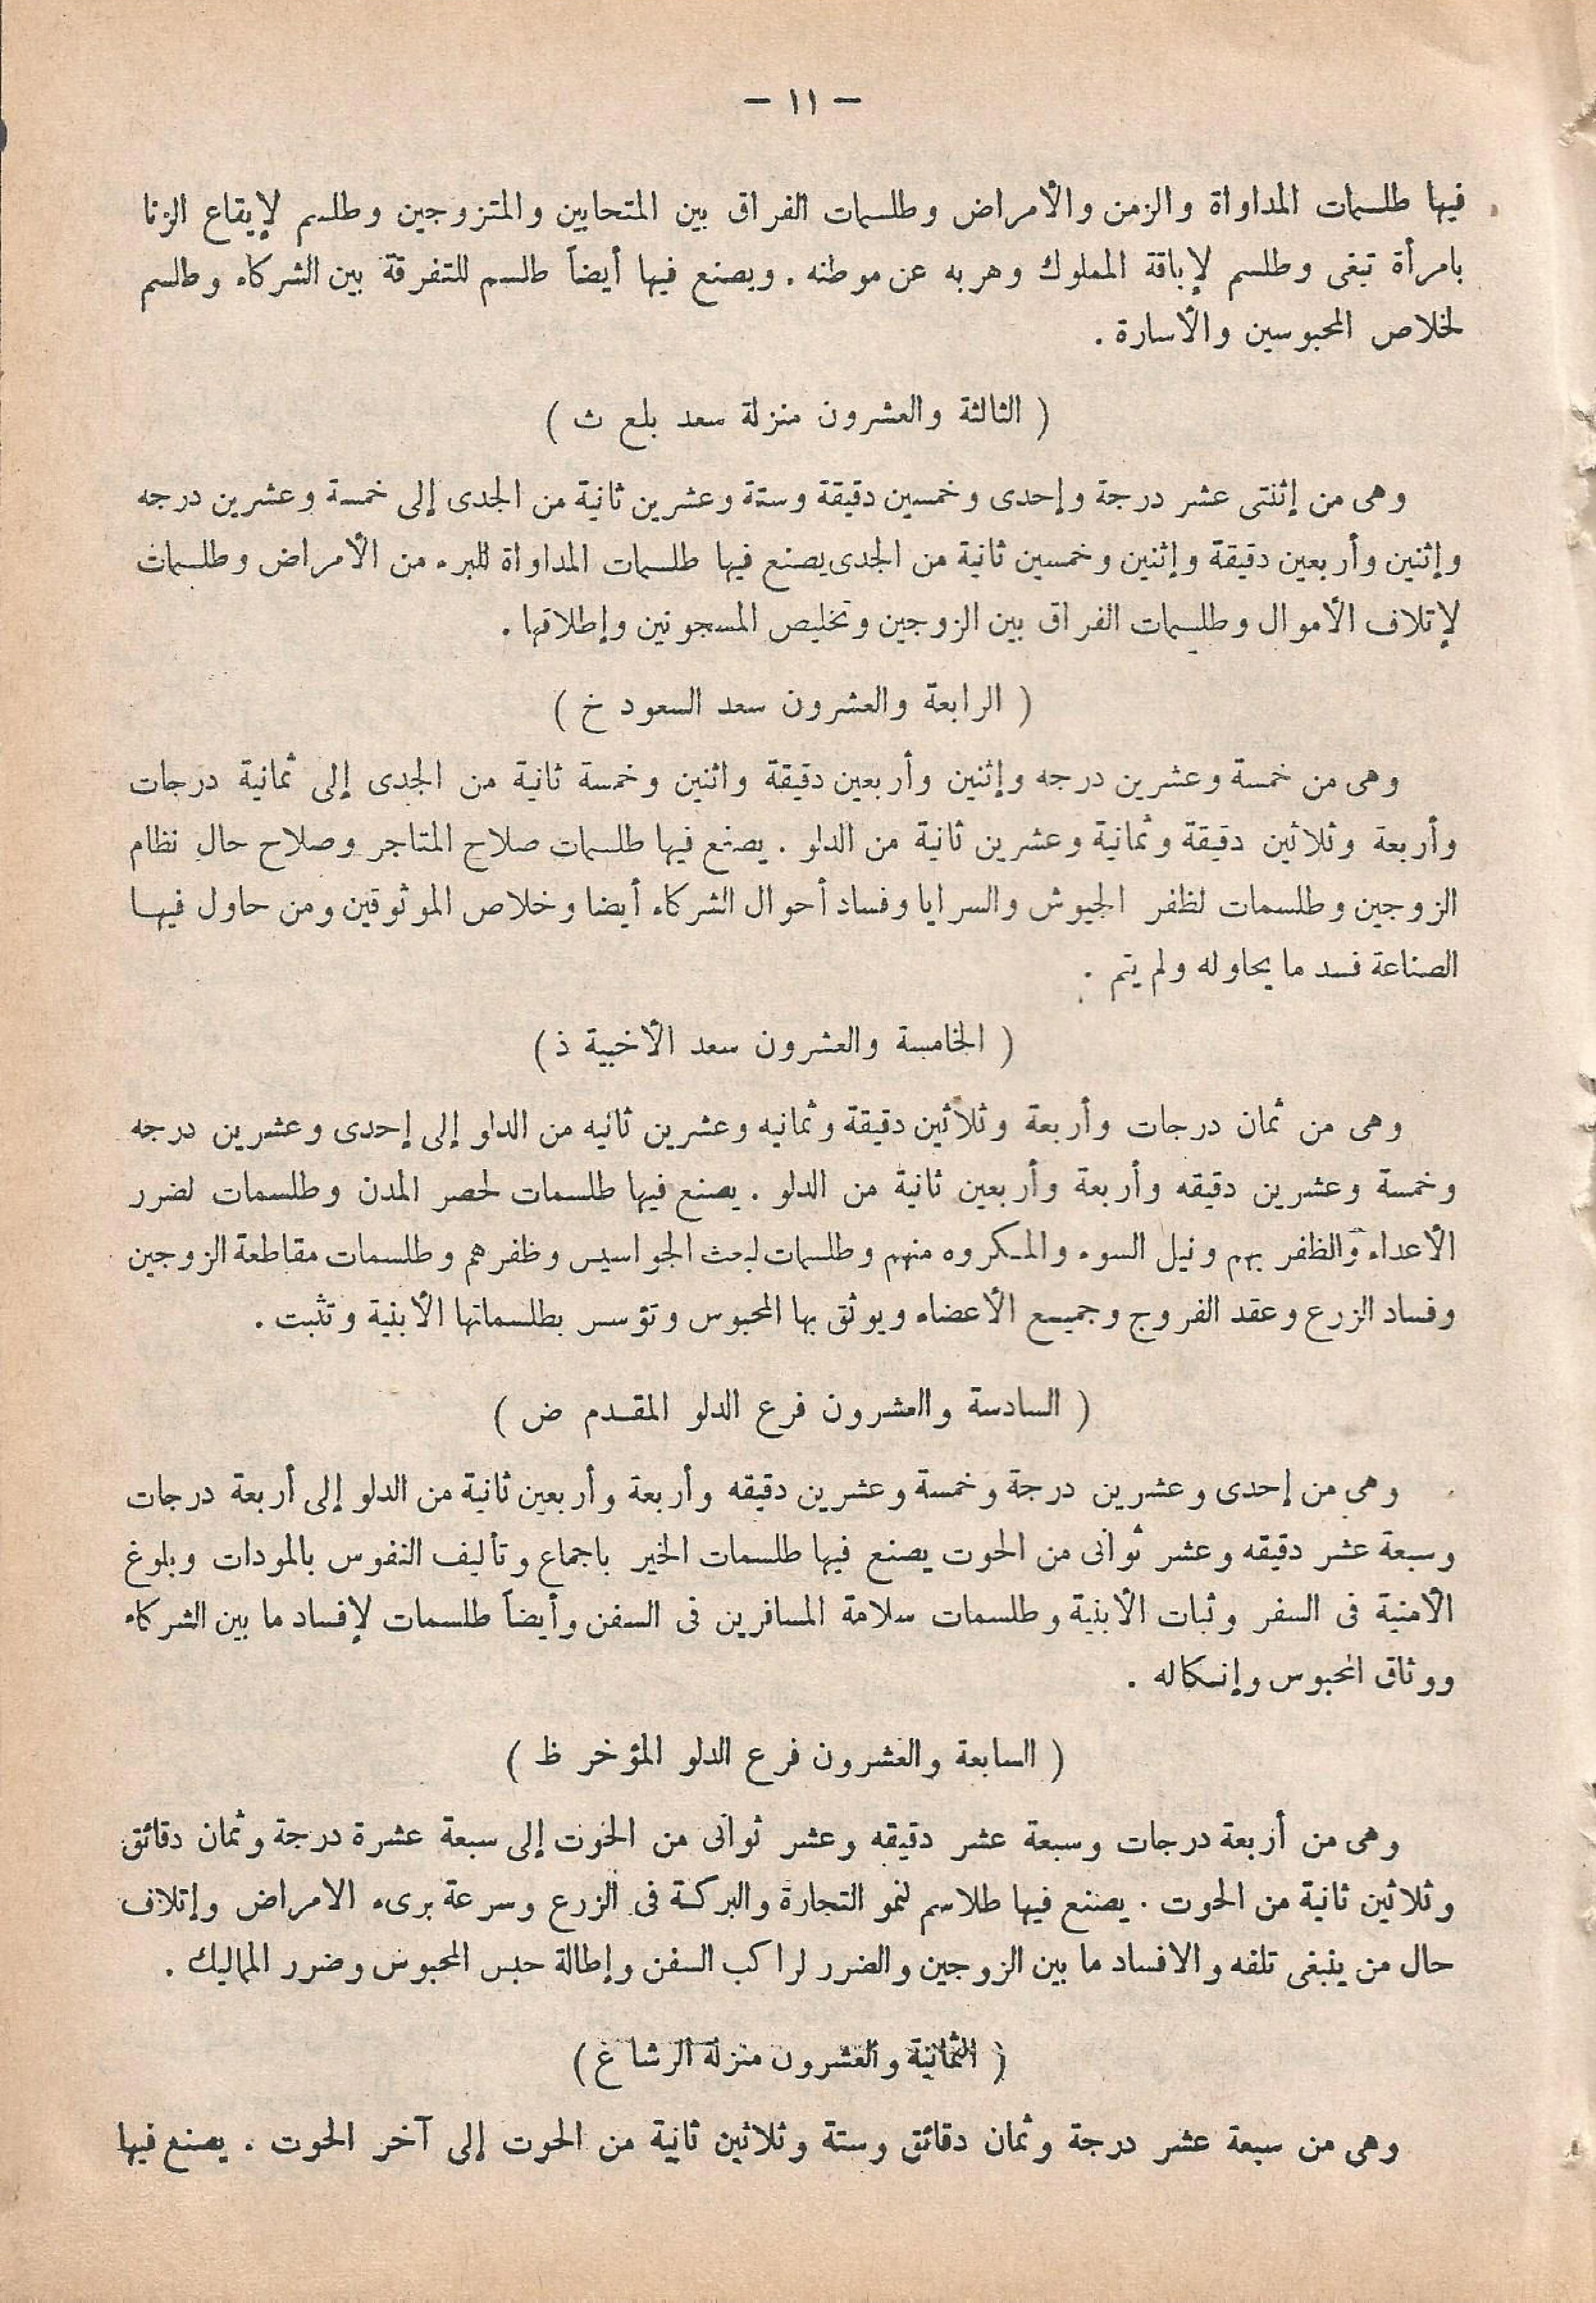 — ١١ —
فيها طلسمات المداواة والزمن والأمراض وطلسمات الفراق بين المتحابين والمتزوجين وطلسم لإيقاع الزنا
بامرأة تبغى وطلسم لإباقة المملوك وهربه عن موطنه . ويصنع فيها أيضاً طلسم للتفرقة بين الشركاء وطلسم
لخلاص المحبوسين والأسارة .
( الثالثة والعشرون منزلة سعد بلع ث )
وهى من إثنتى عشر درجة وإحدى وخمسين دقيقة وستة وعشرين ثانية من الجدى إلى خمسة وعشرين درجه
وإثنين وأربعين دقيقة وإثنين وخمسين ثانية من الجدى يصنع فيها طلسمات المداواة للبرء من الأمراض وطلسمات
لإتلاف الأموال وطلسمات الفراق بين الزوجين وتخليص المسجونين وإطلاقها .
( الرابعة والعشرون سعد السعود خ )
وهى من خمسة وعشرين درجه وإثنين وأربعين دقيقة واثنين وخمسة ثانية من الجدى إلى ثمانية درجات
وأربعة وثلاثين دقيقة وثمانية وعشرين ثانية من الدلو . يصنع فيها طلسمات صلاح المتاجر وصلاح حال نظام
الزوجين وطلسمات لظفر الجيوش والسرايا وفساد أحوال الشركاء أيضا وخلاص الموثوقين ومن حاول فيها
الصناعة فسد ما يحاوله ولم يتم .
( الخامسة والعشرون سعد الأخبية ذ )
وهى من ثمان درجات وأربعة وثلاثين دقيقة وثمانيه وعشرين ثانيه من الدلو إلى إحدى وعشرين درجه
وخمسة وعشرين دقيقه وأربعة وأربعين ثانية من الدلو . يصنع فيها طلسمات لحصر المدن وطلسمات لضرر
الأعداء والظفر بهم ونيل السوء والمكروه منهم وطلسمات لبحث الجواسيس وظفرهم وطلسمات مقاطعة الزوجين
وفساد الزرع وعقد الفروج وجميع الأعضاء ويوثق بها المحبوس وتؤسس بطلسماتها الأبنية وتثبت .
( السادسة والعشرون فرع الدلو المقدم ض )
وهى من إحدى وعشرين درجة وخمسة وعشرين دقيقه وأربعة وأربعين ثانية من الدلو إلى أربعة درجات
وسبعة عشر دقيقه وعشر ثوانى من الحوت يصنع فيها طلسمات الخير باجماع وتأليف النفوس بالمودات وبلوغ
الأمنية فى السفر وثبات الأبنية وطلسمات سلامة المسافرين فى السفن وأيضاً طلسمات لإفساد ما بين الشركاء
ووثاق المحبوس وإنكاله .
( السابعة والعشرون فرع الدلو المؤخر ظ )
وهى من أربعة درجات وسبعة عشر دقيقه وعشر ثوانى من الخوت إلى سبعة عشرة درجة وثمان دقائق
وثلاثين ثانية من الحوت . يصنع فيها طلاسم لنمو التجارة والبركة فى الزرع وسرعة برىء الامراض وإتلاف
حال من ينبغى تلفه والافساد ما بين الزوجين والضرر لراكب السفن وإطالة حبس المحبوس وضرر المماليك .
( الثمانية والعشرون منزلة الرشا غ )
وهى من سبعة عشر درجة وثمان دقائق وستة وثلاثين ثانية من الحوت إلى آخر الحوت . يصنع فيها